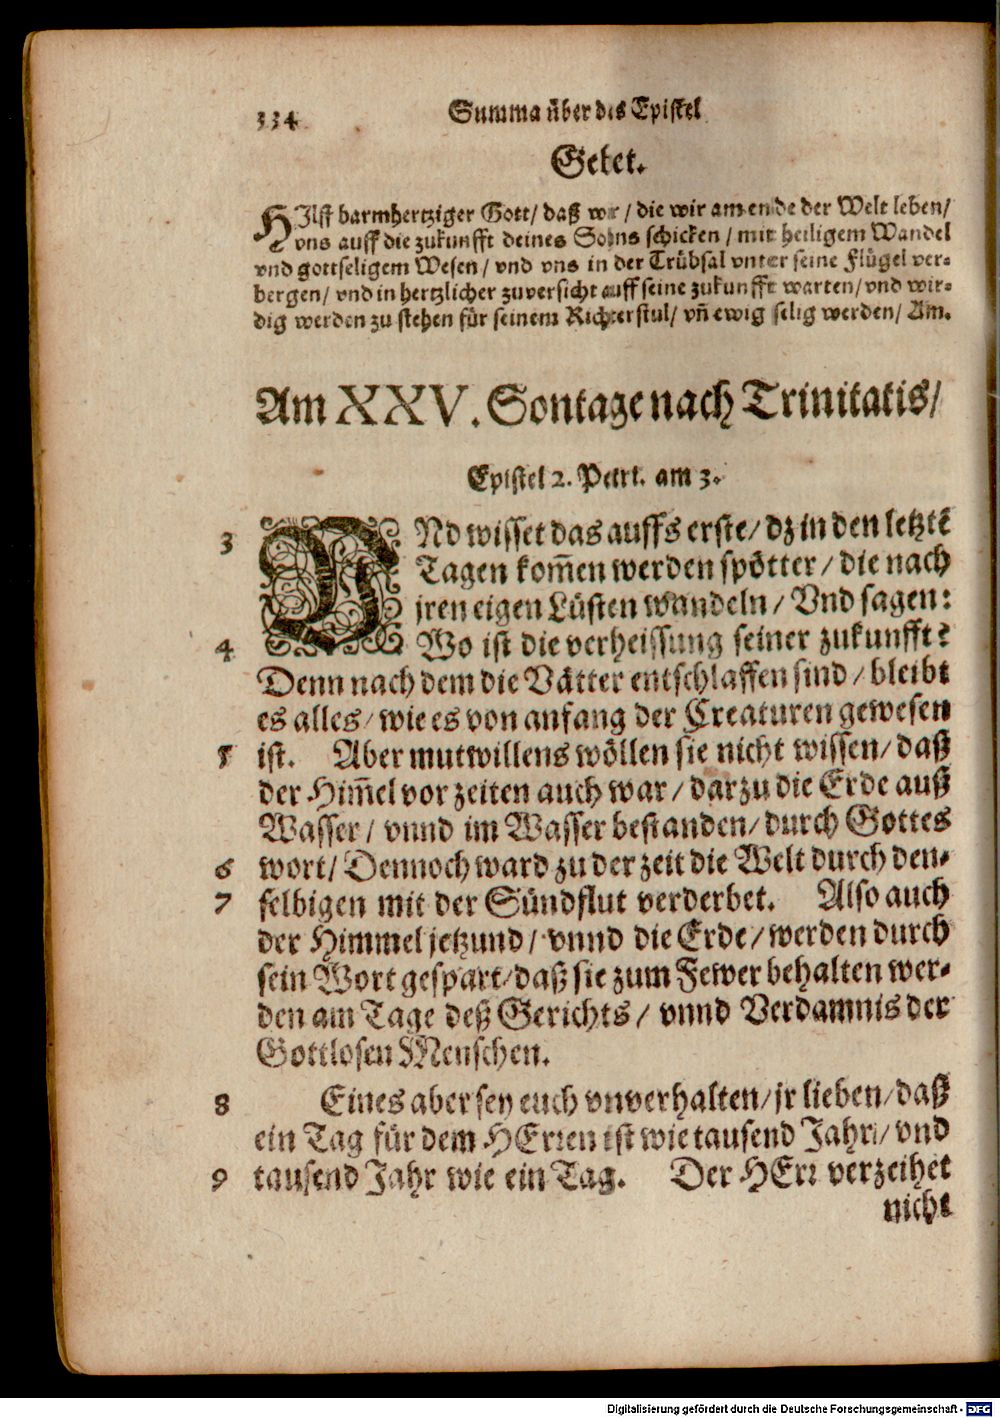 334 Summa über des Epistel
Gebet.
HIlff barmhertziger Gott/ daß wir/ die wir am ende der Welt leben/
vns auff die zukunfft deines Sohns schicken/ mit heiligem Wandel
vnd gottseligem Wesen/ vnd vns in der Trübsal vnter seine Flügel ver-
bergen/ vnd in hertzlicher zuversicht auff seine zukunfft warten/ vnd wir-
dig werden zu stehen für seinem Richterstul/ vñ ewig selig werden/ Am.
Am XXV. Sontage nach Trinitatis/
Epistel 2. Petri. am 3.
3 VNd wisset das auffs erste/ dz in den letztẽ
Tagen kom̃en werden spötter/ die nach
jren eigen Lüsten wandeln/ Vnd sagen:
4 Wo ist die verheissung seiner zukunfft?
Denn nach dem die Vätter entschlaffen sind/ bleibt
es alles/ wie es von anfang der Creaturen gewesen
5 ist. Aber mutwillens wöllen sie nicht wissen/ daß
der Him̃el vor zeiten auch war/ darzu die Erde auß
Wasser/ vnnd im Wasser bestanden/ durch Gottes
6 wort/ Dennoch ward zu der zeit die Welt durch den-
7 selbigen mit der Sündflut verderbet. Also auch
der Himmel jetzund/ vnnd die Erde/ werden durch
sein Wort gespart/ daß sie zum Fewer behalten wer-
den am Tage deß Gerichts/ vnnd Verdamnis der
Gottlosen Menschen.
8 Eines aber sey euch vnverhalten/ jr lieben/ daß
ein Tag für dem HErren ist wie tausend Jahr/ vnd
9 tausend Jahr wie ein Tag. Der HErr verzeihet
nicht
Digitalisierung gefördert durch die Deutsche Forschungsgemeinschaft - DFG